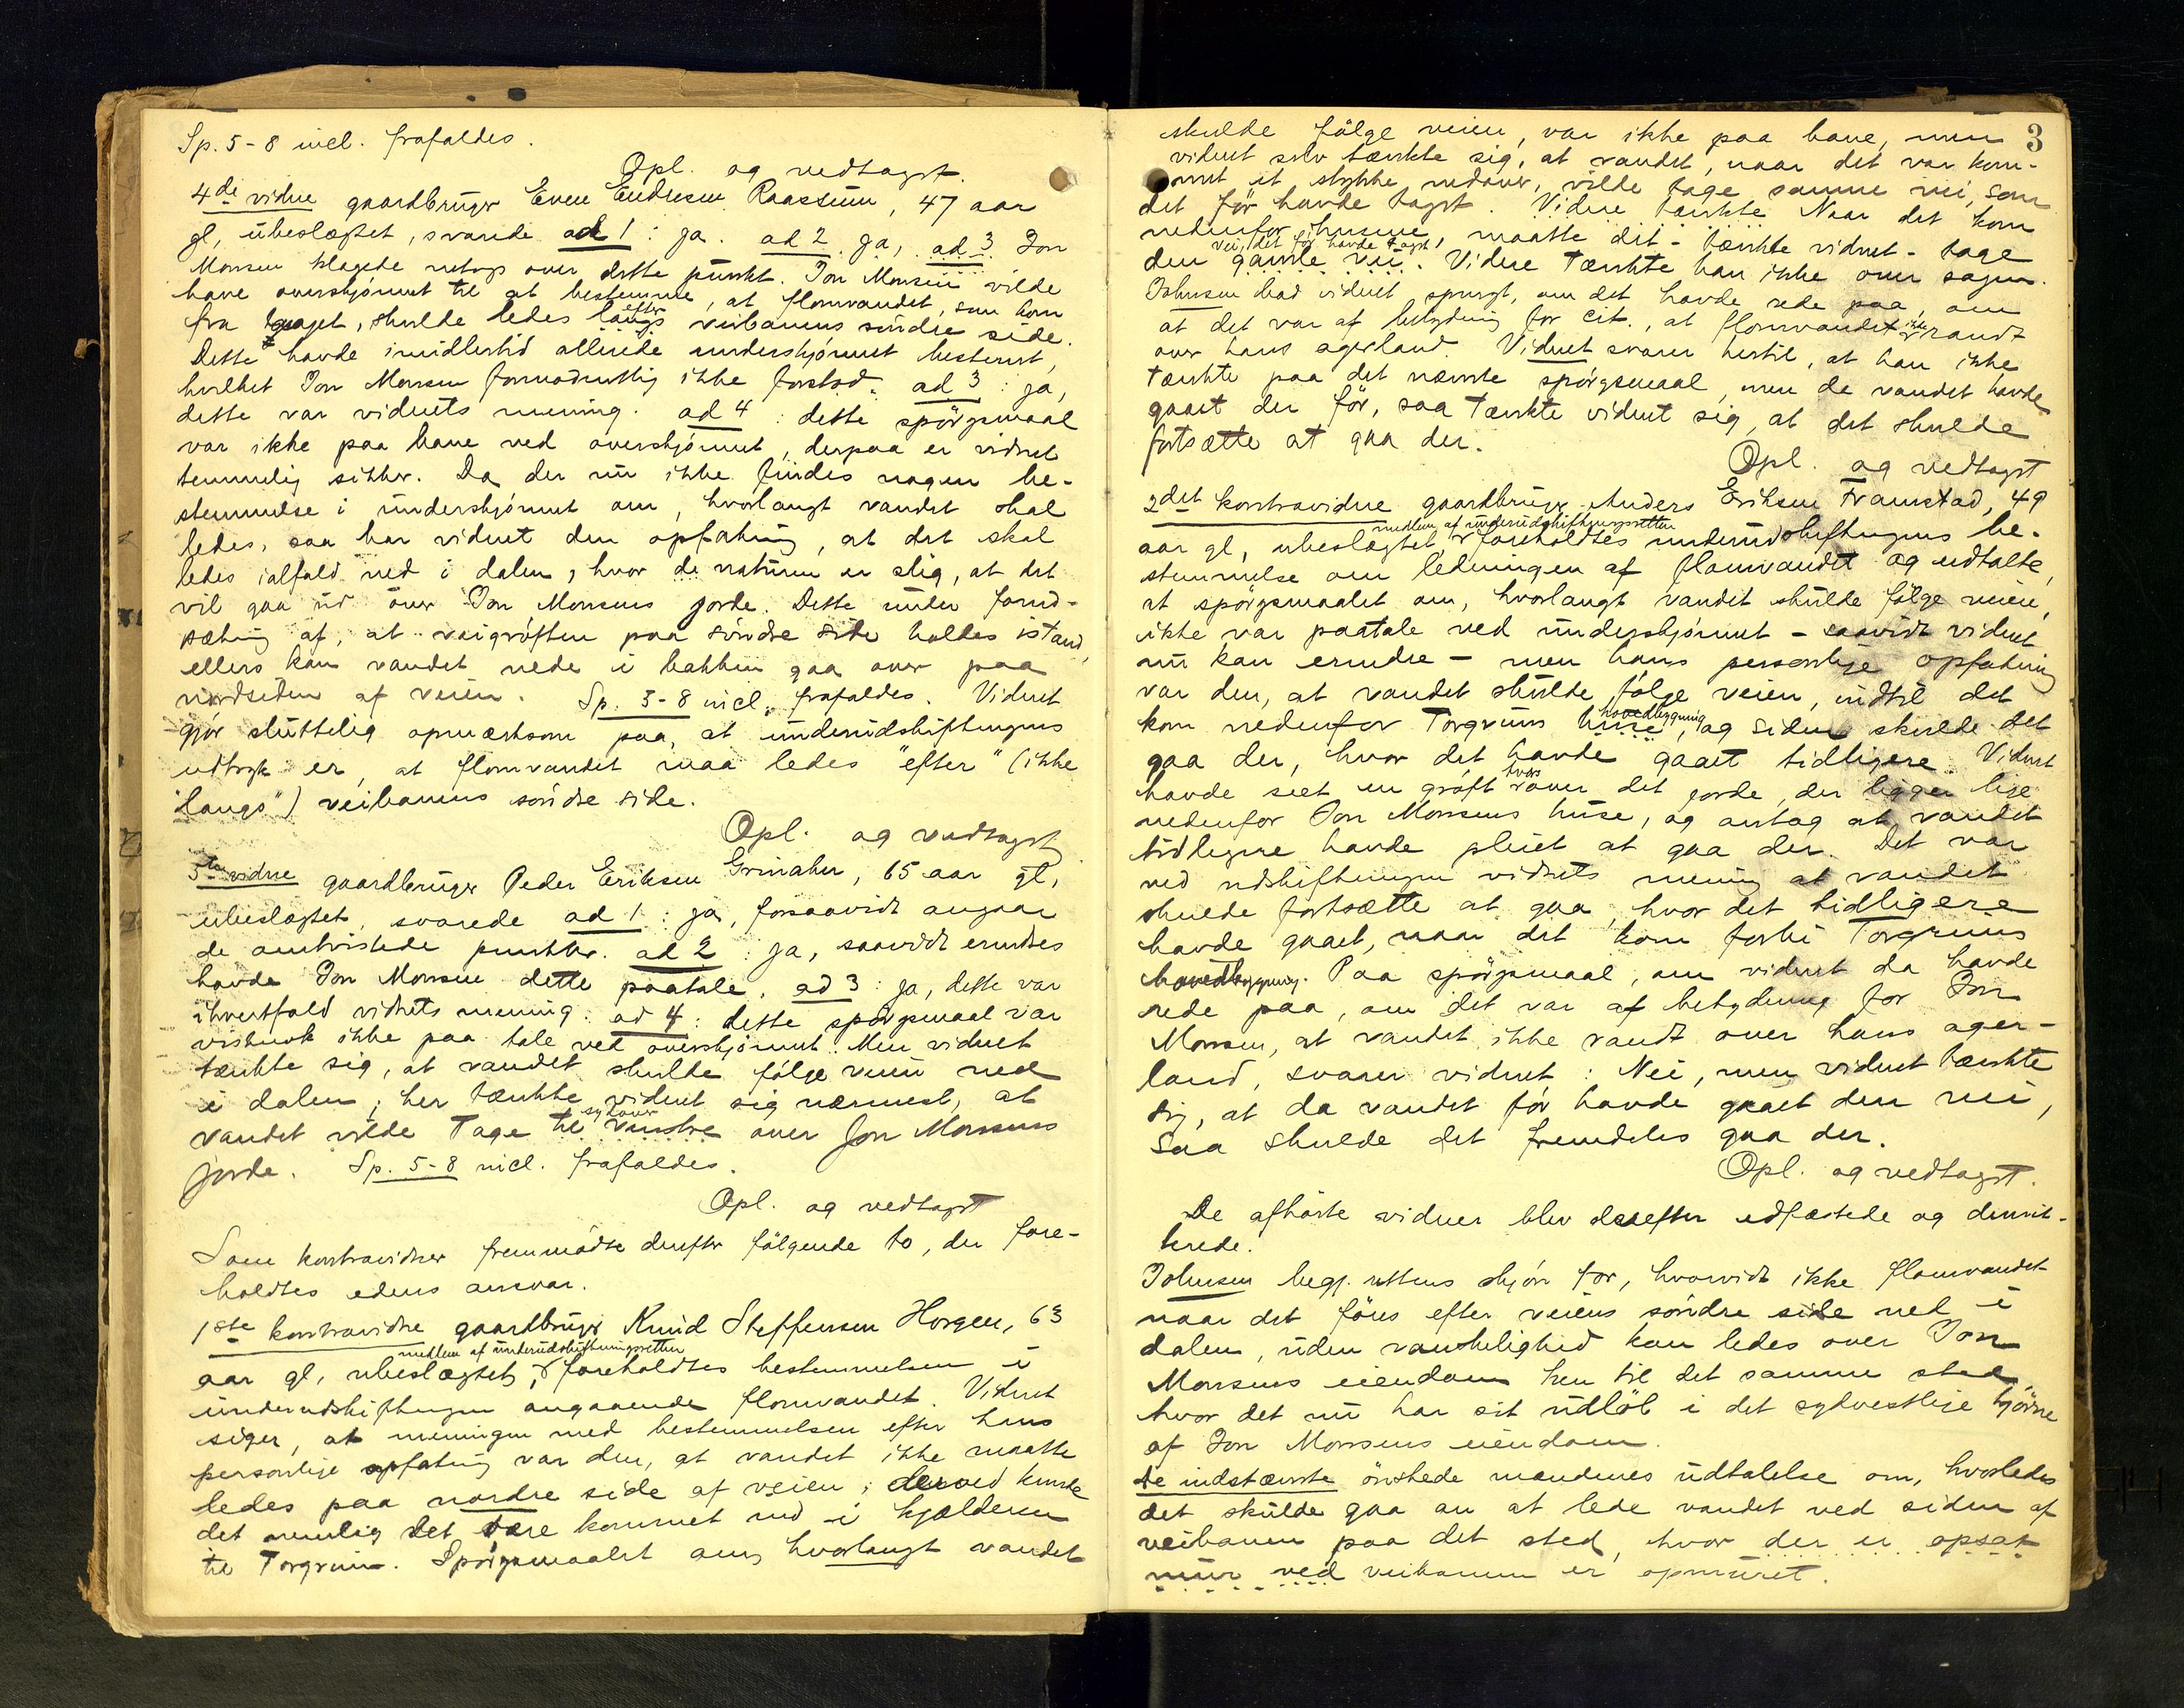 Sp. 5-8 incl. frafaldes.
Opl. og vedtaget.
4de vidne gaardbruger Even Endresen Raassum, 47 aar
gl, ubeslægtet, svarede ad 1: ja. ad 2 ja, ad 3 Jon
Monsen klagede netop over dette punkt. Jon Monsen vilde
have overskjønnet til at bestemme, at flomvandet, som kom
fra skaget, skulde ledes langs efter veibanens søndre side.
Dette havde imidlertid allerede underskjønnet bestemt,
hvilket Jon Monsen formodentlig ikke forstod. ad 3: ja,
dette var vidnets mening. ad 4: dette spørgsmaal
var ikke paa bane ved overskjønnet, derpaa er vidnet
temmelig sikker. Da der nu ikke findes nogen be-
stemmelse i underskjønnet om, hvorlangt vandet skal
ledes, saa har vidnet den opfatning, at det skal
ledes ialfald ned i dalen, hvor de naturen er slig, at det
vil gaa ud over Jon Monsens jorde. Dette under forud-
sætning af, at veigrøften paa søndre side holdes istand,
ellers kan vandet nede i bakken gaa over paa
nordsiden af veien. Sp. 3-8 incl. frafaldes. Vidnet
gjør sluttelig opmerksom paa, at underudskiftningens
udtryk er, at flomvandet maa ledes "efter" (ikke
"langs") veibanens søndre side.
Opl. og vedtaget
5te vidne gaardbruger Peder Eriksen Grinaker, 65 aar gl,
ubeslægtet, svarede ad 1: ja, forsaavidt angaar
de omtvistede punkter. ad 2: ja, saavidt erindres
havde Jon Monsen dette paatale. ad 3: ja, dette var
ihvertfald vidnets mening. ad 4: dette spørgsmaal var
vistnok ikke paa tale ved overskjønnet. Men vidnet
tænkte sig, at vandet skulde følge veien ned
i dalen; her tænkte vidnet sig nærmest, at
vandet vilde tage til venstre sydover over Jon Monsens
jorde. Sp. 5-8 incl. frafaldes.
Opl. og vedtaget
Som kontravidner fremmødte derefter følgende to, der fore-
holdtes edens ansvar.
1ste kontravidne gaardbruger Knud Steffensen Horgen, 63
aar gl, ubeslægtet, medlem af underudskiftningsretten foreholdtes bestemmelsen i
underudskiftningen angaaende flomvandet. Vidnet
siger, at meningen med bestemmelsen efter hans
personlige opfatning var den, at vandet ikke maatte
ledes paa nordre side af veien; derved kunde
det nemlig let være kommet ind i kjælderen
til Torgrim. Spørgsmaalet om, hvorlangt vandet
3
skulde følge veien, var ikke paa bane, men
vidnet selv tænkte sig, at vandet, naar det var kom-
met et stykke nedover, vilde tage samme vei, som
det før havde taget. Videre tænkte Naar det kom
nedenfor husene, maatte det - tænkte vidnet - tage
den gamle vei vei, det før havde taget. Videre tænkte han ikke over sagen.
Johnsen bad vidnet spurgt, om det havde rede paa, om
at det var af betydning for cit., at flomvandet ikke randt
over hans agerland. Vidnet svarer hertil, at han ikke
tænkte paa det nævnte spørgsmaal, men da vandet havde
gaaet der før, saa tænkte vidnet sig, at det skulde
fortsætte at gaa der.
Opl. og vedtaget
2det kontravidne gaardbruger Anders Eriksen Framstad, 49
aar gl, ubeslægtet, medlem af underudskiftningsretten foreholdtes underudskiftningens be-
stemmelse om ledningen af flomvandet og udtalte,
at spørgsmaalet om, hvorlangt vandet skulde følge veien,
ikke var paatale ved underskjønnet - saavidt vidnet
nu kan erindre - men hans personlige opfatning
var den, at vandet skulde følge veien, indtil det
kom nedenfor Torgrims huse hovedbygning, og siden skulde det
gaa der, hvor det havde gaaet tidligere. Vidnet
havde seet en grøft tvers over det jorde, der ligger lige
nedenfor Jon Monsens huse, og antog at vandet
tidligere havde pleiet at gaa der. Det var
ved udskiftningen vidnets mening at vandet
skulde fortsætte at gaa, hvor det tidligere
havde gaaet, naar det kom forbi Torgrims
hovedbygning. Paa spørgsmaal, om vidnet da havde
rede paa, om det var af betydning for Jon
Monsen, at vandet ikke randt over hans ager-
land, svarer vidnet: Nei, men vidnet tænkte
sig, at da vandet før havde gaaet den vei,
saa skulde det fremdeles gaa der.
Opl. og vedtaget.
De afhørte vidner blev derefter edfæstede og dimit-
terede.
Johnsen begj. rettens skjøn for, hvorvidt ikke flomvandet
naar det føres efter veiens søndre side ned i
dalen, uden vanskelighed kan ledes over Jon
Monsens eiendom hen til det samme sted,
hvor det nu har sit udløb i det sydvestlige hjørne
af Jon Monsens eiendom.
De indstævnte ønskede mændenes udtalelse om, hvorledes
det skulde gaa an at lede vandet ved siden af
veibanen paa det sted, hvor der er opsat
mur ved veibanen er opmuret.